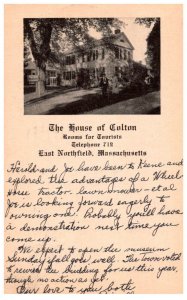 The House of Colton
Rooms for Tourists
Telephone 712
East Northfield, Massachusetts
Herald and Joe have been to Keene and
explored the advantages of a Wheel
Horse Tractor, lawn mower - et al
Joe is looking forward eagerly to
owning one. Probably you'll have
a demonstration next time you
come up.
We expect to open the museum
Sunday if all goes well. The town voted
to the budding for us this year,
though no action as yet
Our love to you both